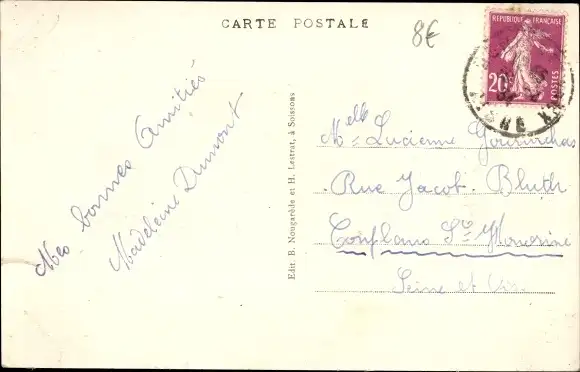 CARTE POSTALE
8€
RÉPUBLIQUE FRANÇAISE
20c
POSTES
AISNE
Mes bonnes Amitiés
Madeleine Dumont
Edit. B. Nougarède et H. Lestrat, à Soissons
Melle Lucienne
Rue Jacob Bluth
Conflans Ste Honorine
Seine et Oise